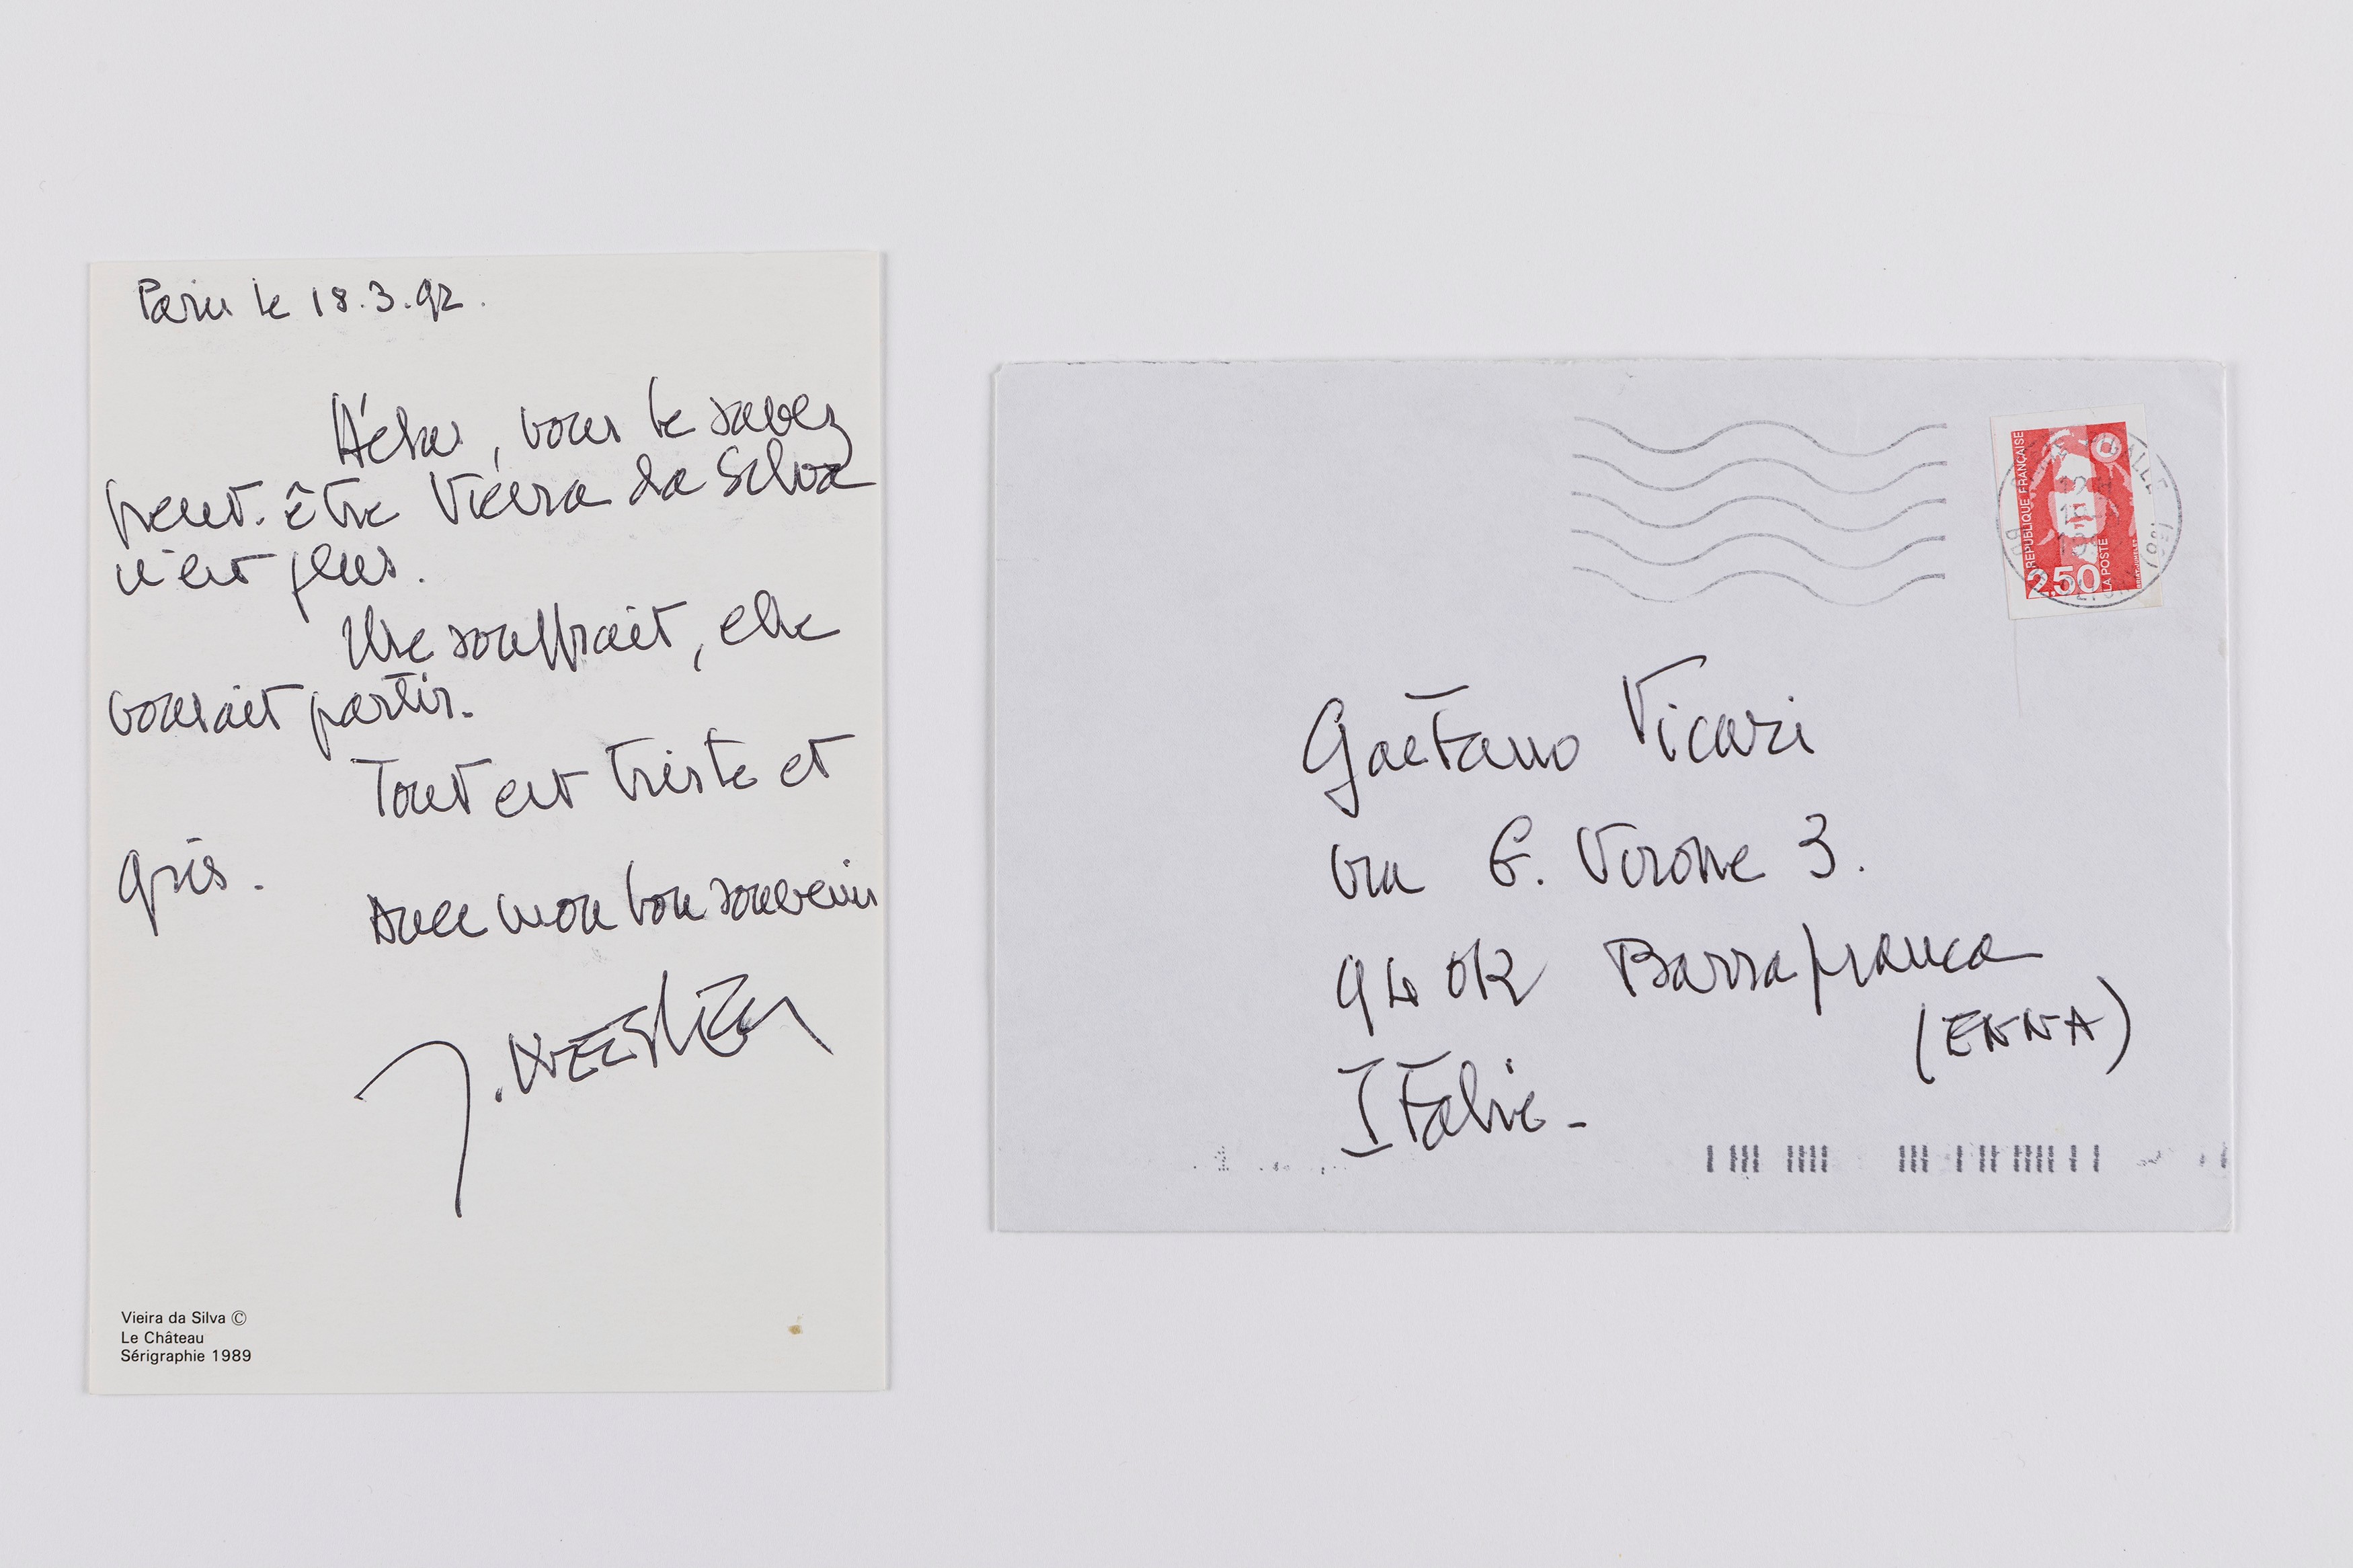 Paris le 18.3.92.
Hélas, vous le savez
peut-être Vieira da Silva
n'est plus.
Elle souffrait, elle
voulait partir.
Tout est triste et
gris.
Avec mon bon souvenir
Vieira da Silva ©
Le Château
Sérigraphie 1989
REPUBLIQUE FRANÇAISE
2,50
LA POSTE
Gaetano Vicari
via G. Verone 3.
94012 Barrafranca
(ENNA)
ITalie-